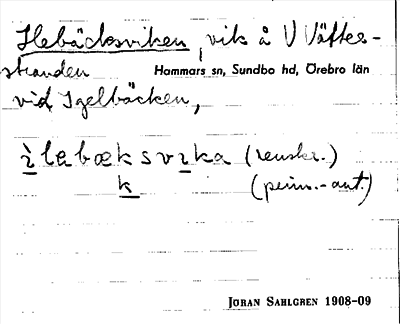 Ilebäcksviken, vik å V Vätter-
stranden Hammars sn, Sundbo hd, Örebro län
vid Igelbäcken,
ìlebæksvika (renskr.)
k (prim.-ant.)
JÖRAN SAHLGREN 1908-09